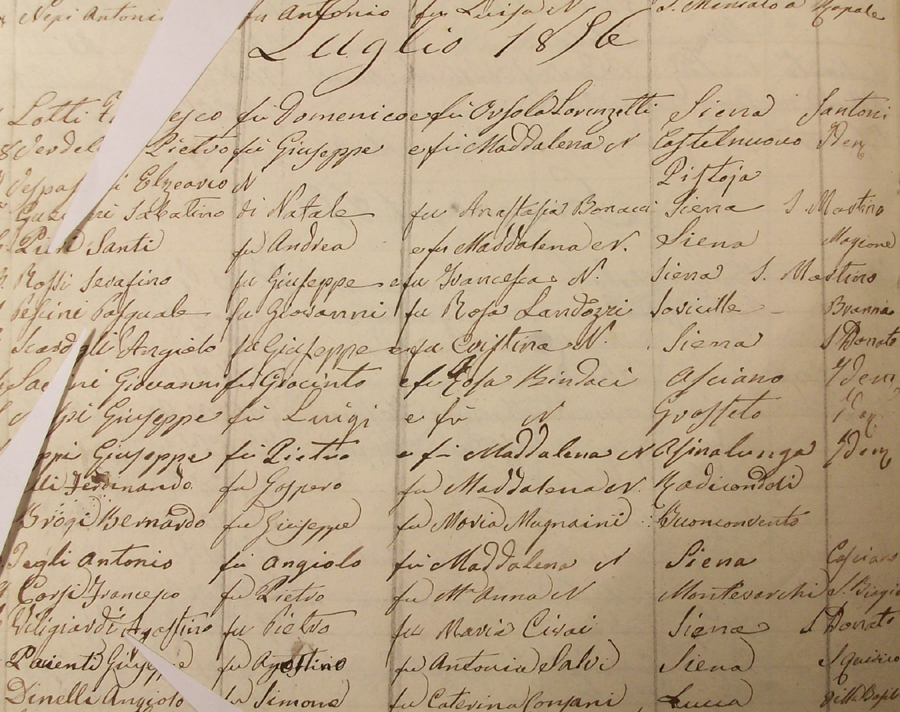 Nepi Antonio fu Antonio fu Luisa N
Luglio 1856
Lotti fu Domenico e fu Orsola Lorenzetti Siena Santoni
Pietro fu Giuseppe e fu Maddalena N Castelnuovo Idem
Elzeario N Pistoja
Sabatino di Natale fu Anastasia Bonacci Siena S Martino
Pieri Santi fu Andrea e fu Maddalena N. Siena Magione
Rossi Serafino fu Giuseppe e fu Francesca N. Siena S. Martino
Pescini Pasquale fu Giovanni fu Rosa Landozzi Sovicille
Angiolo fu Giuseppe e fu Cristina N. Siena S Donato
Giovanni fu Giacinto e fu Rosa Bindaci Asciano Idem
Giuseppe fu Luigi e fu N Grosseto
Giuseppe fu Pietro e fu Maddalena N Asinalunga Idem
Ferdinando fu Gaspero fu Maddalena N. Radicondoli
Brogi Bernardo fu Giuseppe fu Maria Mugnaini Buonconvento
Pegli Antonio fu Angiolo fu Maddalena N Siena
Corsi Francesco fu Pietro fu Ma. Anna N Montevarchi
Viligiardi Agostino fu Pietro fu Maria Civai Siena S Donato
Parenti Giuseppe fu Agostino fu Antonia Salvi Siena S Quirico
Dinelli Angiolo fu Simone fu Caterina Consani Lucca